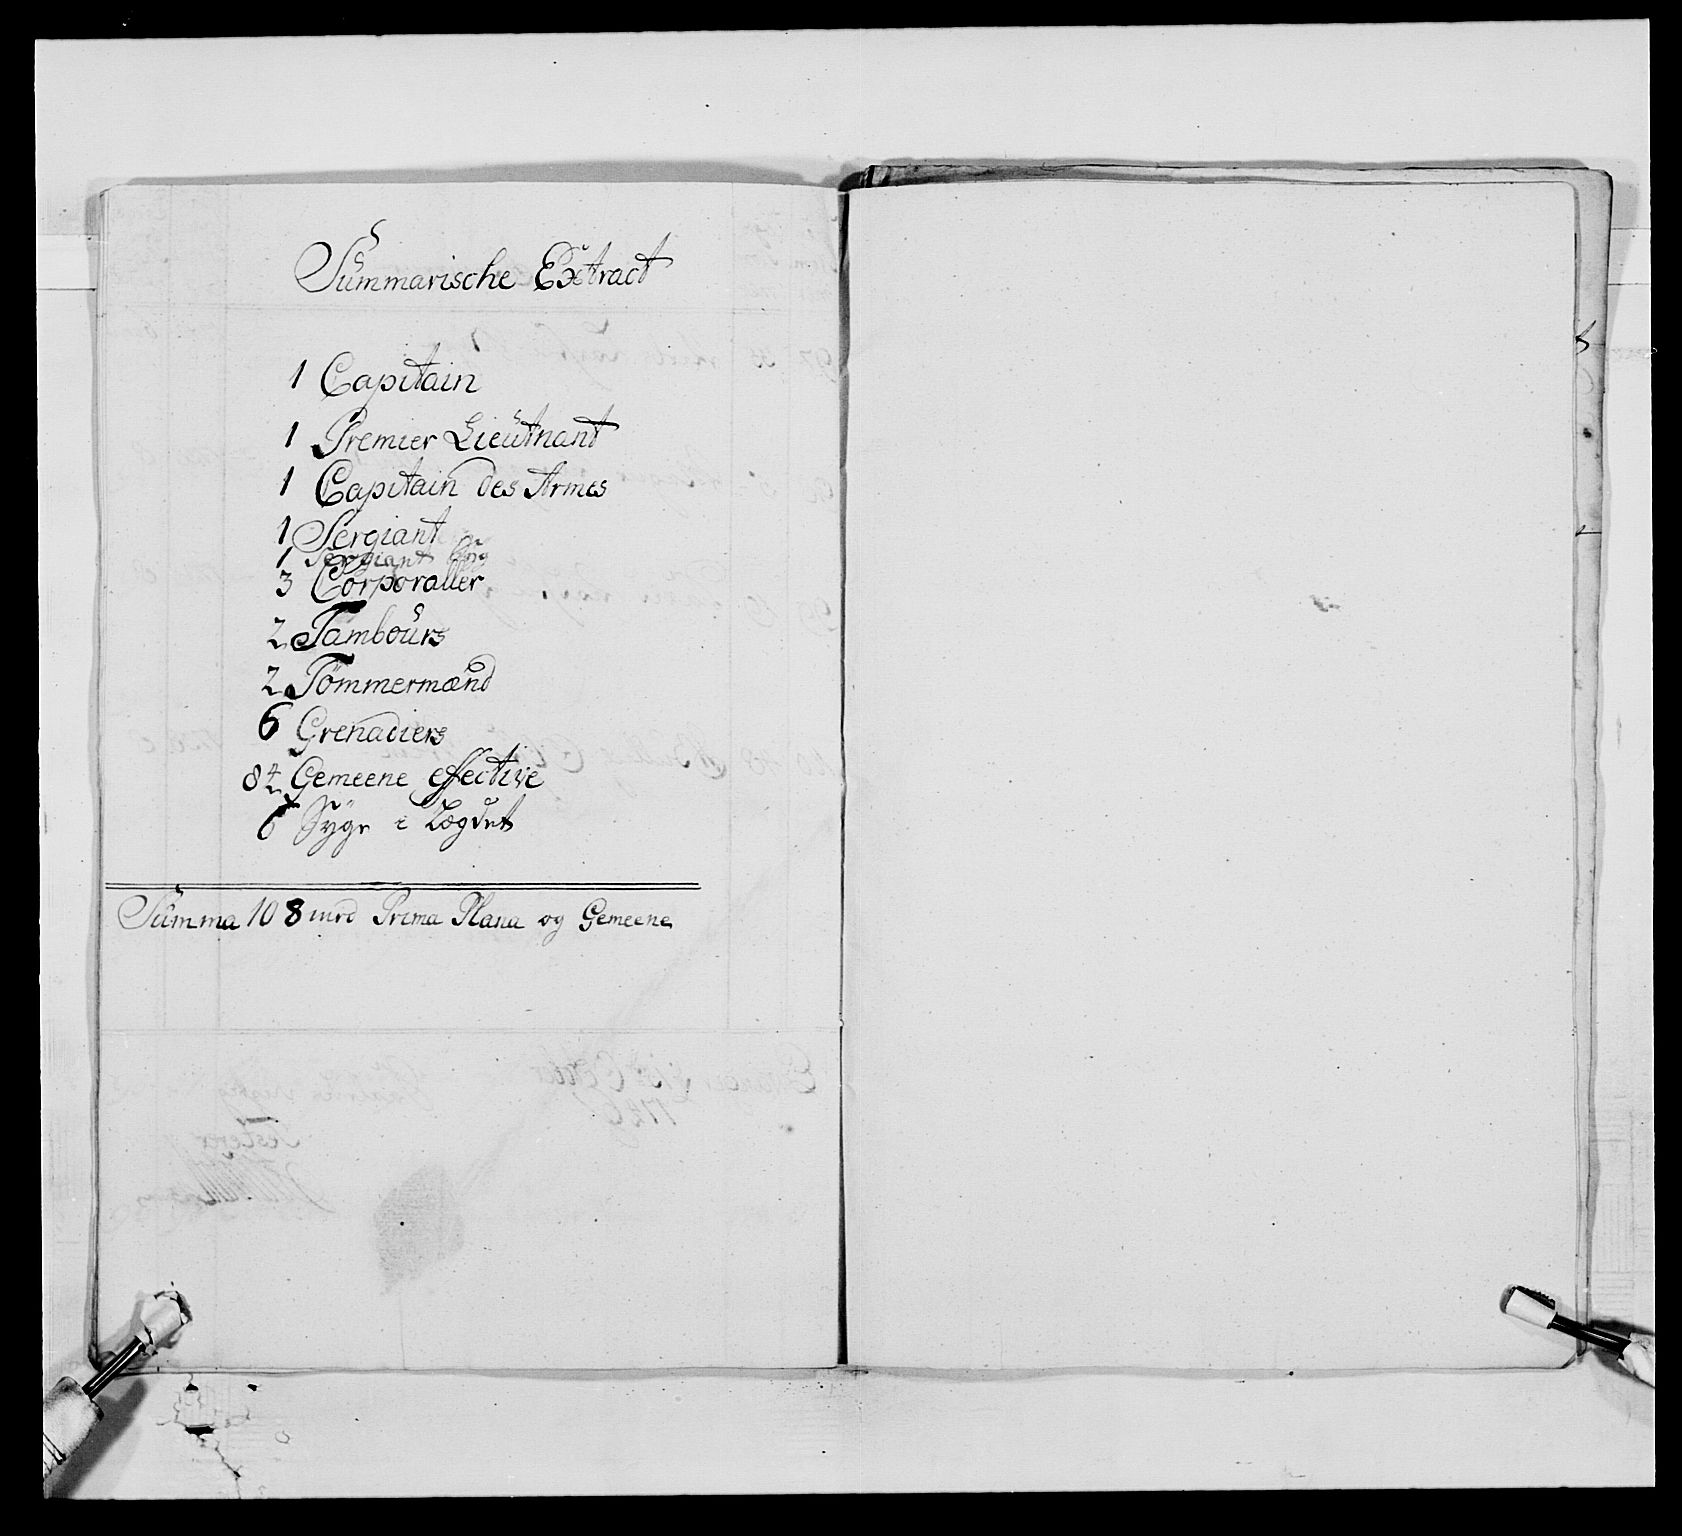 Summarische Extract
1 Capitain
1 Premier Lieutnant
1 Capitain des Armes
1 Sergiant
1 Sergiant Syg
3 Corporaller
2 Tambours
2 Tömmermænd
6 Grenadiers
84 Gemeene effective
6 Syge i Lægdet
Summa 108 med Prima Plana og Gemeene